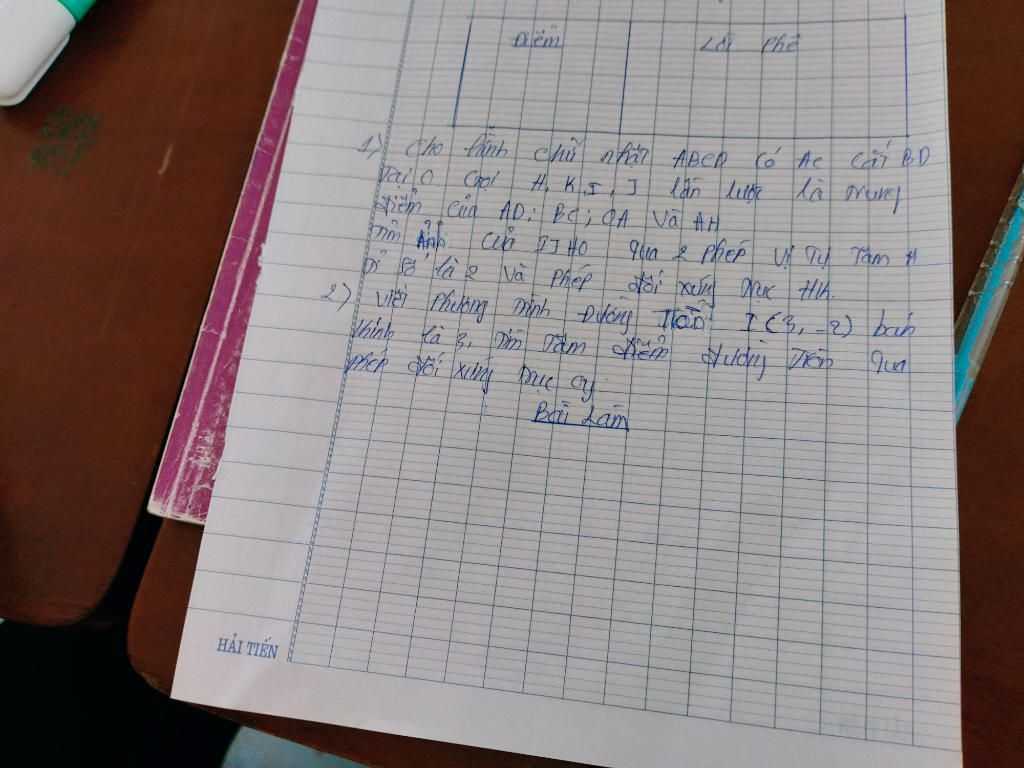 Điểm Lời phê
1) Cho hình chữ nhật ABCD có AC cắt BD
tại O. Gọi H, K, I, J lần lược là trung
điểm của AD; BC; OA và AH
Tìm Ảnh của IJHO qua 2 phép vị tự tâm H
tỉ số là 2 và phép đối xứng trục HK.
2) viết phương trình Đường Tròn I(3, -2) bán
kính là 3, tìm tâm điểm đường tròn qua
phép đối xứng trục oy.
Bài Làm
HẢI TIẾN